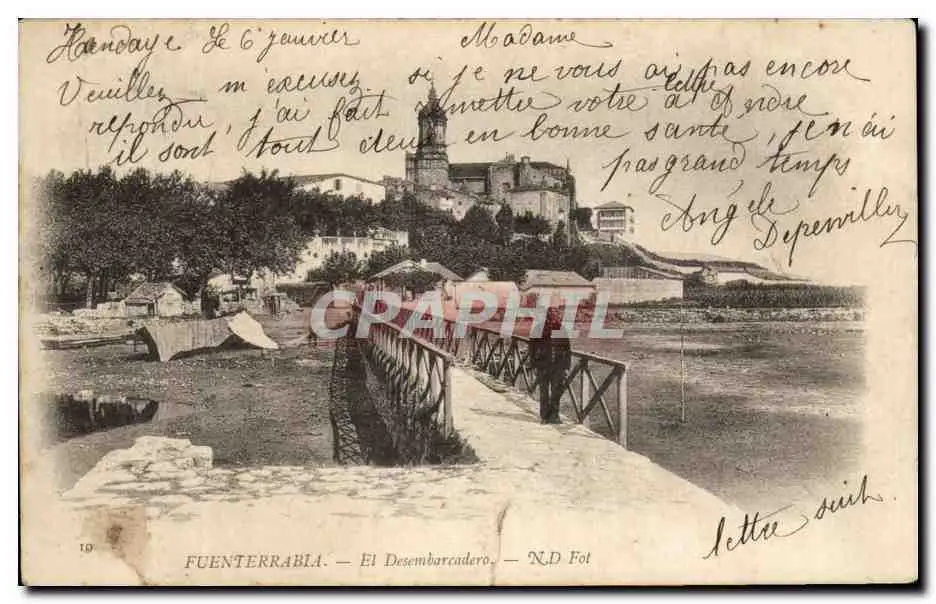 Hendaye le 6 janvier
Madame
Veuillez m'excusez si je ne vous ai pas encore
répondu, j'ai fait remettre votre lettre à Andrée
il sont tout deux en bonne santé, je n'ai
pas grand temps
Angèle
lettre suit.
CPArama.com
19
FUENTERRABIA. — El Desembarcadero. — ND Fot